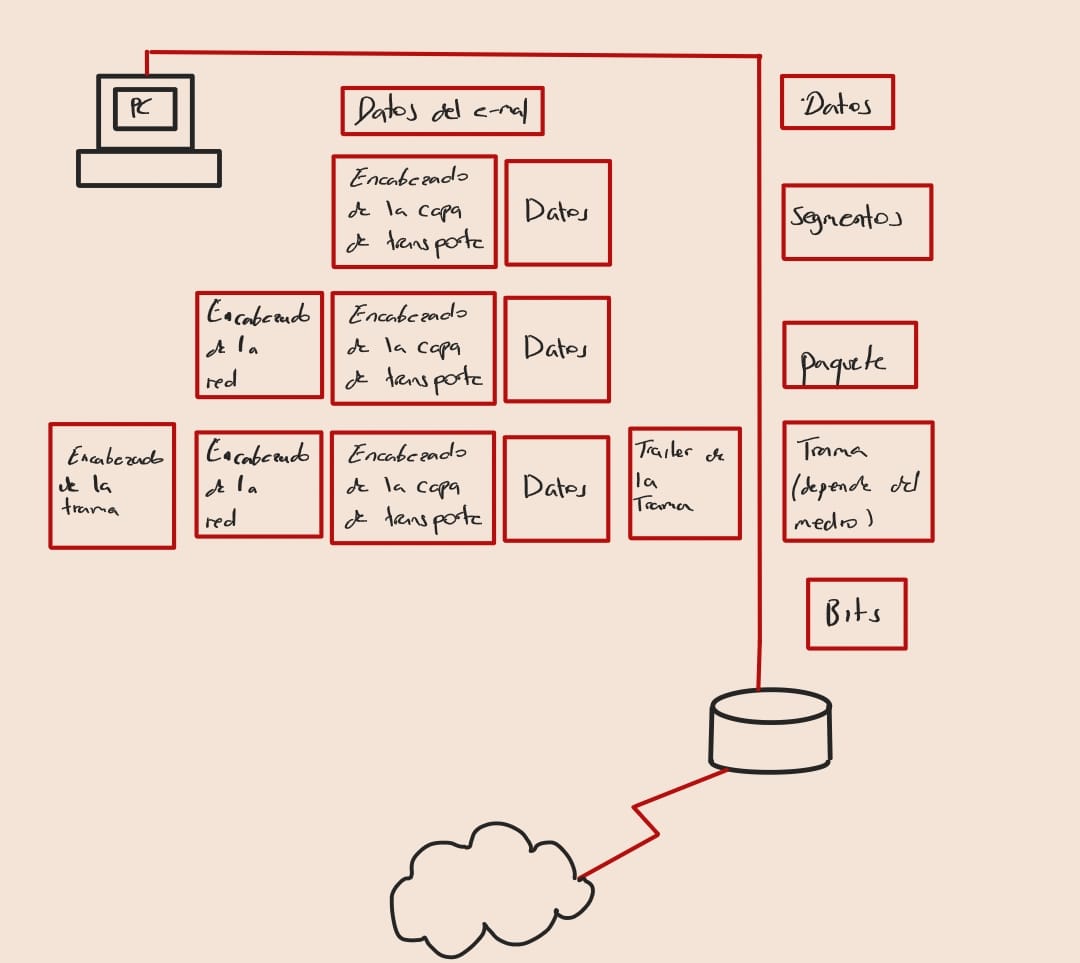 PC
Datos del e-mal
Datos
Encabezado
de la capa
de transporte
Datos
Segmentos
Encabezado
de la
red
Encabezado
de la capa
de transporte
Datos
paquete
Encabezado
de la
trama
Encabezado
de la
red
Encabezado
de la capa
de transporte
Datos
Trailer de
la
Trama
Trama
(depende del
medio)
Bits